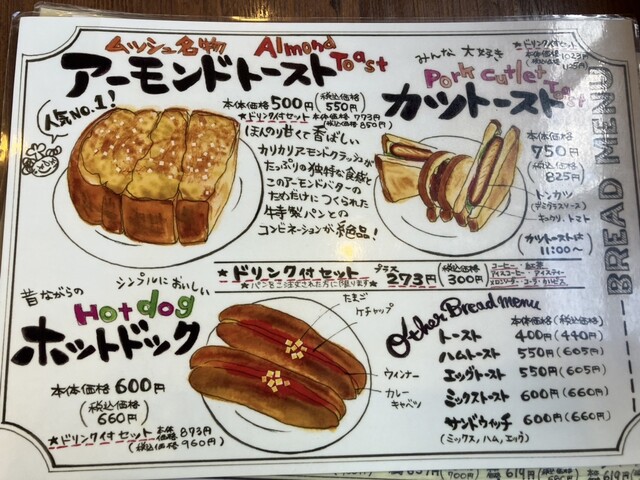 ムッシュ名物 Almond Toast
アーモンドトースト
人気NO.1!
本体価格 500円 (税込価格) 550円
★ドリンク付セット 本体価格 773円
(税込価格) 850円
ほんのり甘くて香ばしい
カリカリアーモンドクラッシュが
たっぷりの独特な食感
このアーモンドバターの
ためだけにつくられた
特製パンとの
コンビネーションが絶品!
みんな大好き
Pork Cutlet Toast
カツトースト
★ドリンク付セット
本体価格 1023円
本体価格
750円
(税込価格)
825円
トンカツ
(デミグラスソース)
キュウリ、トマト
カツトーストは
11:00〜
BREAD MENU
★ドリンク付セット プラス 273円 (税込価格) 300円
★パンをご注文された方に限ります★
コーヒー・紅茶
アイスコーヒー・アイスティー
メロンソーダ・コーラ・カルピス
昔ながらの シンプルにおいしい
Hotdog
ホットドック
本体価格 600円
(税込価格)
660円
★ドリンク付セット 本体価格 873円
(税込価格) 960円
たまご
ケチャップ
ウィンナー
カレー
キャベツ
Other Bread menu
本体価格(税込価格)
トースト 400円(440円)
ハムトースト 550円(605円)
エッグトースト 550円(605円)
ミックストースト 600円(660円)
サンドウィッチ 600円(660円)
(ミックス,ハム,エッグ)